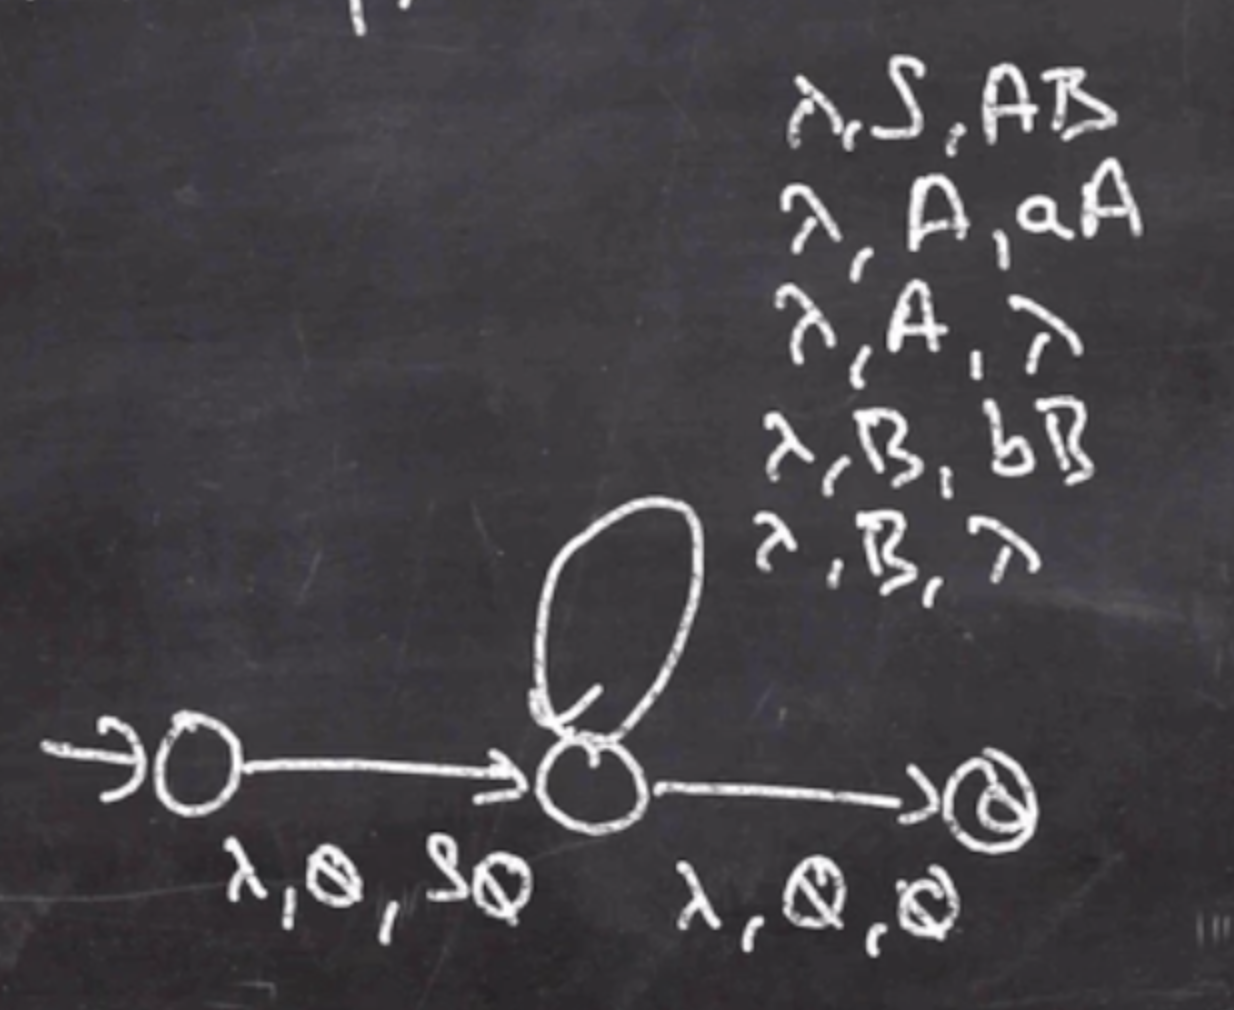 λ,S,AB
λ,A,aA
λ,A,λ
λ,B,bB
λ,B,λ
λ,Ø,SØ λ,Ø,Ø